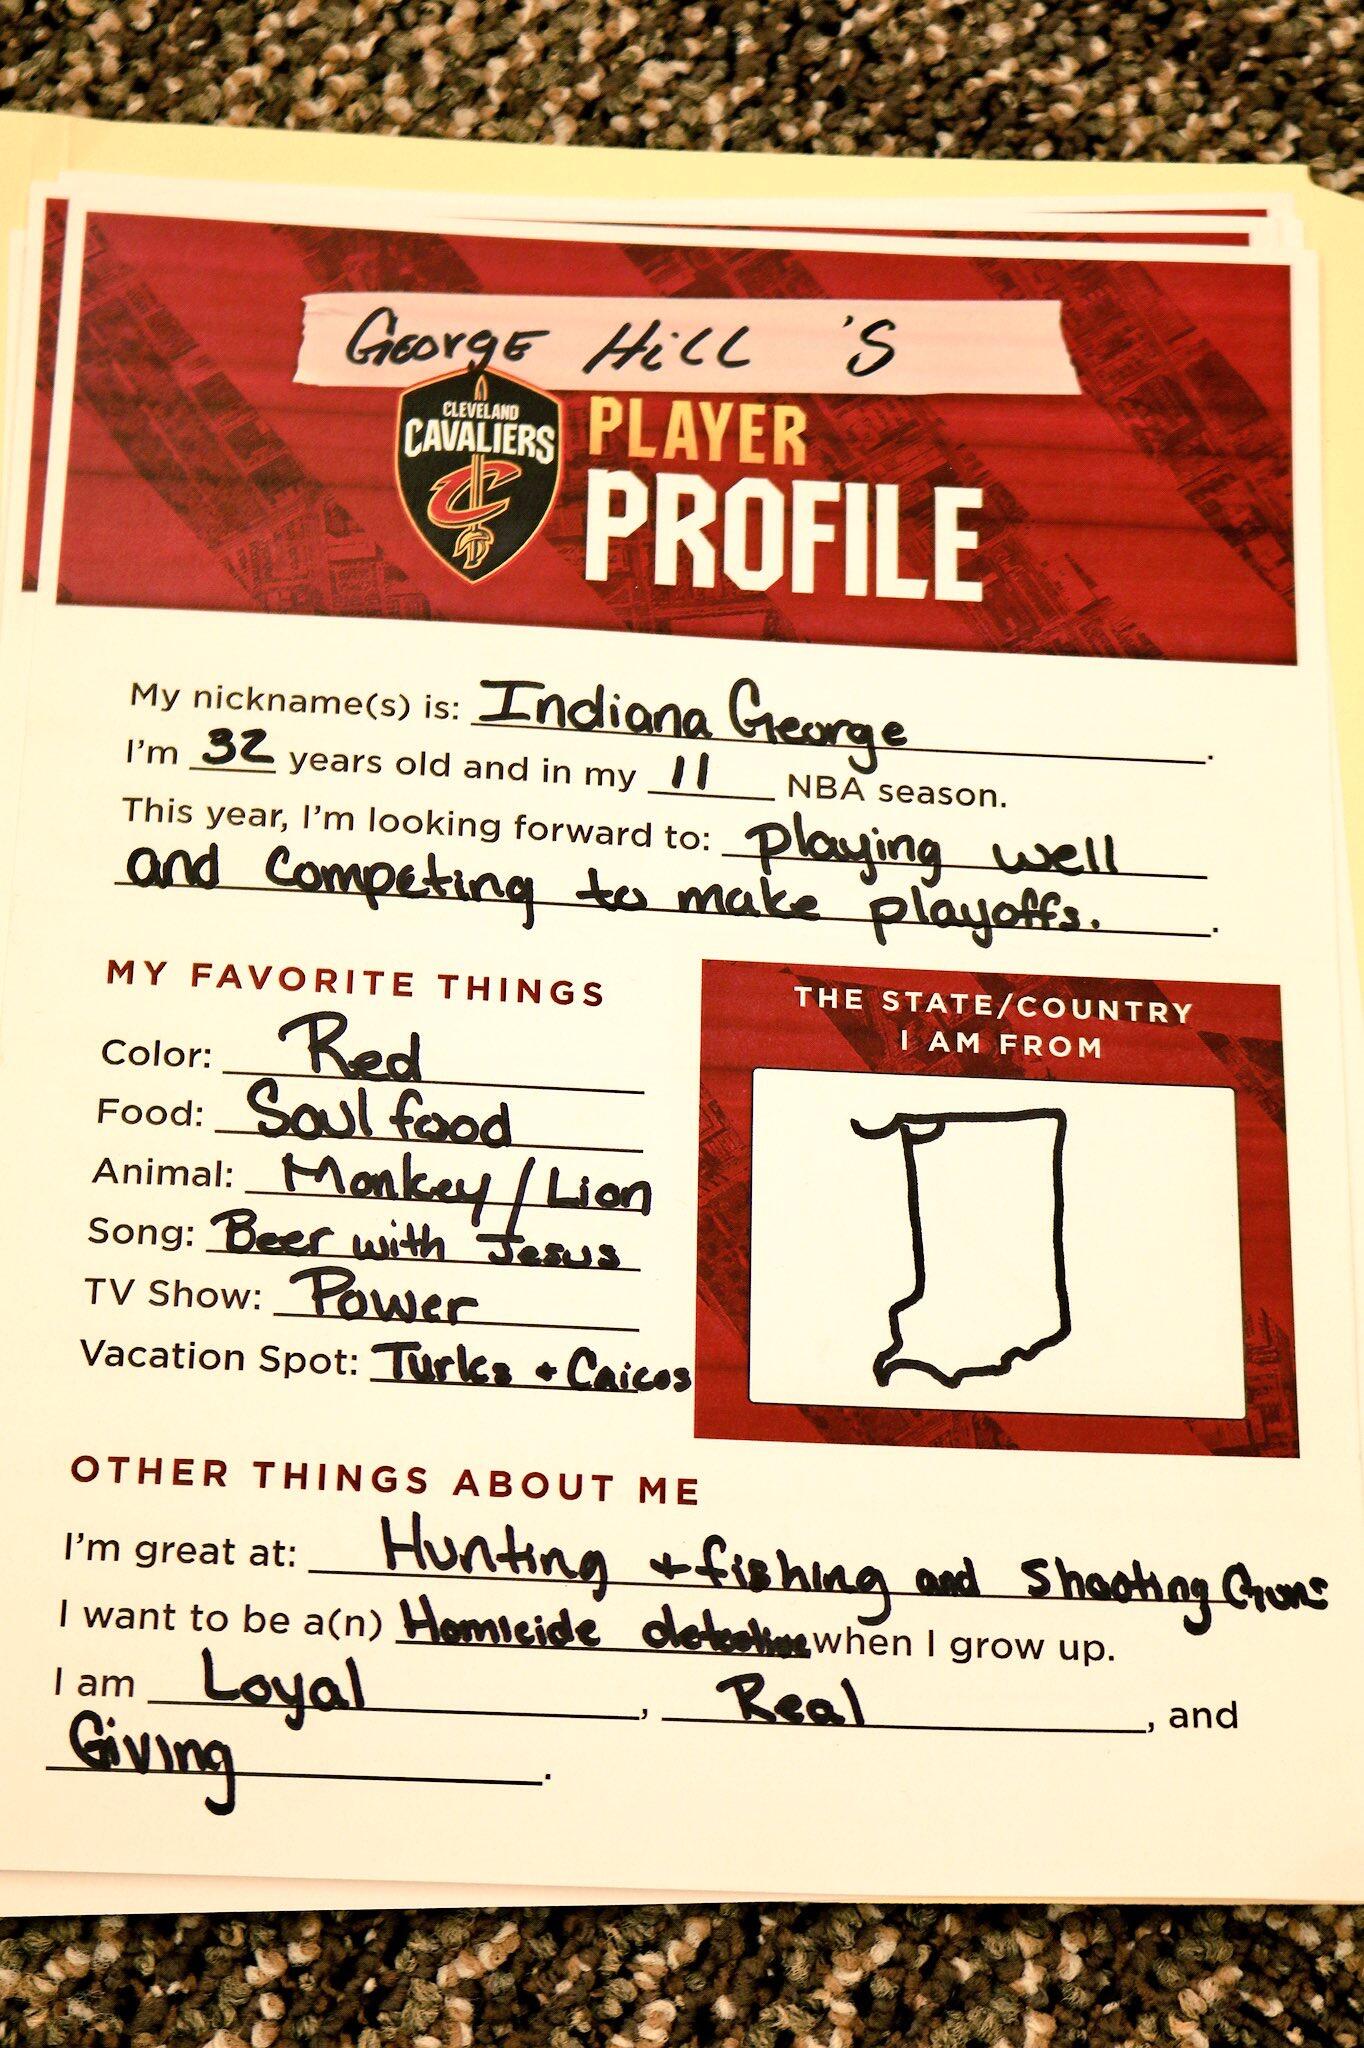 George Hill 's
CLEVELAND
CAVALIERS
C
PLAYER
PROFILE
My nickname(s) is: Indiana George.
I'm 32 years old and in my 11 NBA season.
This year, I'm looking forward to: Playing well
and competing to make playoffs.
MY FAVORITE THINGS
Color: Red
Food: Soul food
Animal: Monkey / Lion
Song: Beer with Jesus
TV Show: Power
Vacation Spot: Turks + Caicos
THE STATE/COUNTRY
I AM FROM
OTHER THINGS ABOUT ME
I'm great at: Hunting + fishing and shooting Guns
I want to be a(n) Homicide detective when I grow up.
I am Loyal, Real, and
Giving.